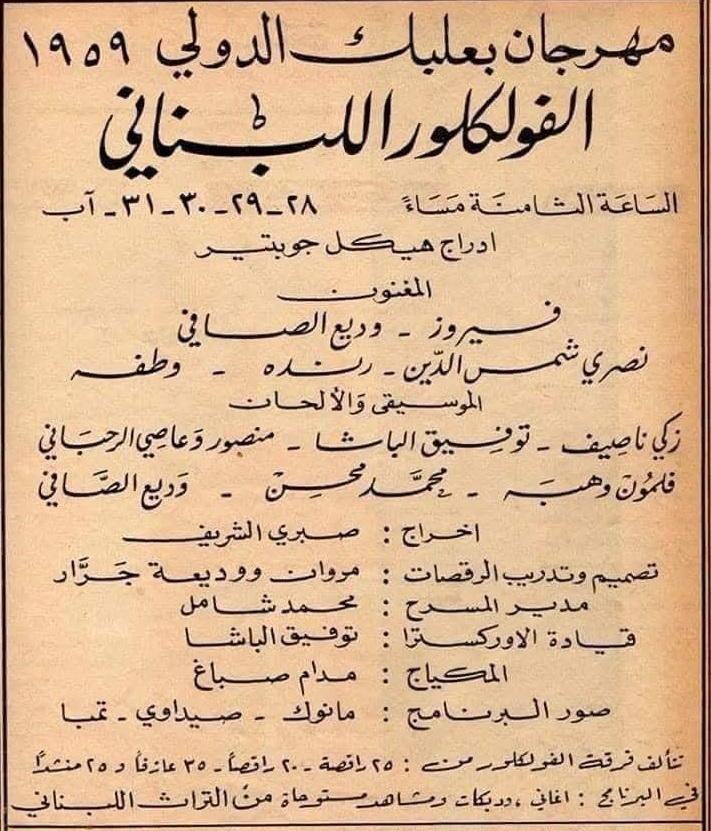 مهرجان بعلبك الدولي ١٩٥٩
الفولكلور اللبناني
الساعة الثامنة مساءً ٢٨ - ٢٩ - ٣٠ - ٣١ - آب
ادراج هيكل جوبتير
المغنون
فيروز - وديع الصافي
نصري شمس الدّين - رنده - وطفه
الموسيقى والألحان
زكي ناصيف - توفيق الباشا - منصور وعاصي الرحباني
فلمون وهبه - محمَّد محسن - وديع الصَّافي
اخراج : صبري الشريف
تصميم وتدريب الرقصات : مروان ووديعة جرَّار
مدير المسرح : محمد شامل
قيادة الاوركسترا : توفيق الباشا
المكياج : مدام صباغ
صور البرنامج : مانوك - صيداوي - تمبا
تتألف فرقة الفولكلور من : ٢٥ راقصة - ٢٠ راقصاً - ٣٥ عازفاً و ٢٥ منشداً
في البرنامج : اغاني ، ودبكات ومشاهد مستوحاة من التراث اللبناني